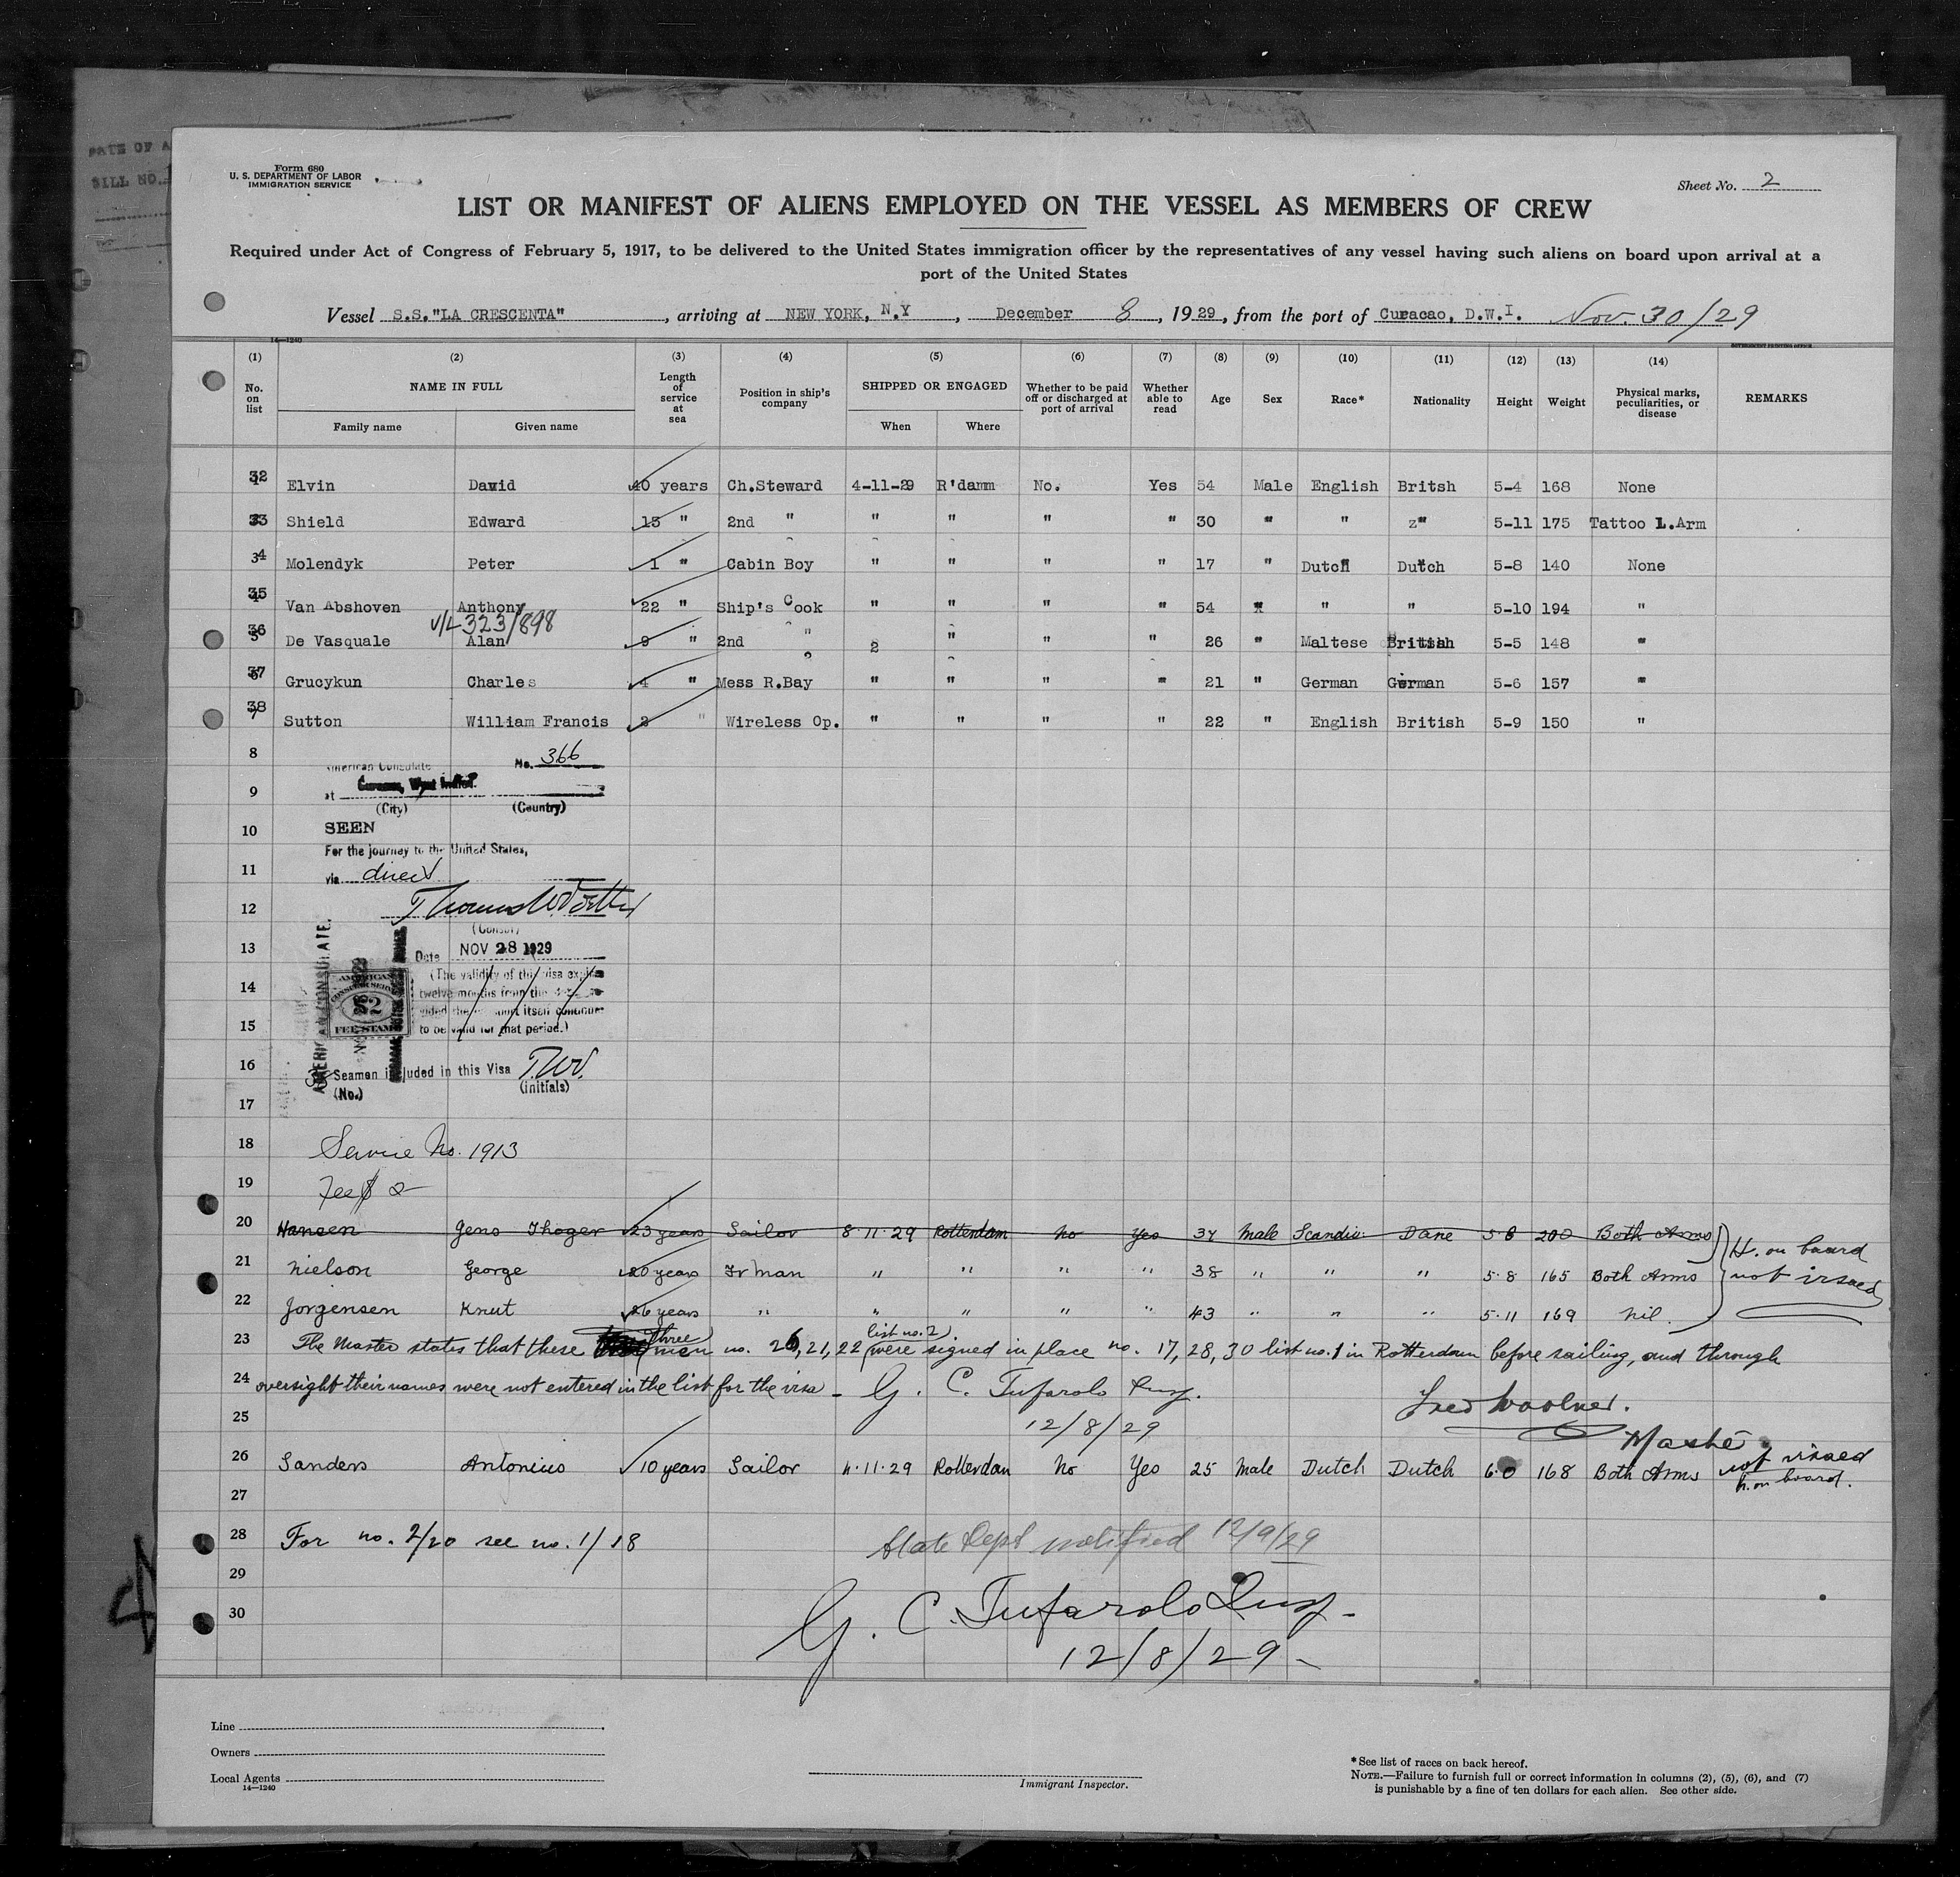 DATE OF A
BILL NO.
Form 680
U. S. DEPARTMENT OF LABOR
IMMIGRATION SERVICE
Sheet No. 2
LIST OR MANIFEST OF ALIENS EMPLOYED ON THE VESSEL AS MEMBERS OF CREW
Required under Act of Congress of February 5, 1917, to be delivered to the United States immigration officer by the representatives of any vessel having such aliens on board upon arrival at a
port of the United States
Vessel S.S."LA CRESCENTA", arriving at NEW YORK, N.Y, December 8, 1929, from the port of Curacao, D.W.I. Nov. 30/29
14—1240
GOVERNMENT PRINTING OFFICE
(1) (2) (3) (4) (5) (6) (7) (8) (9) (10) (11) (12) (13) (14)
No. on list NAME IN FULL Length of service at sea Position in ship's company SHIPPED OR ENGAGED Whether to be paid off or discharged at port of arrival Whether able to read Age Sex Race* Nationality Height Weight Physical marks, peculiarities, or disease REMARKS
Family name Given name When Where
32 Elvin David 40 years Ch.Steward 4-11-29 R'damm No. Yes 54 Male English Britsh 5-4 168 None
33 Shield Edward 15 " 2nd " " " " " 30 " " z" 5-11 175 Tattoo L.Arm
34 Molendyk Peter 1 " Cabin Boy " " " " 17 " Dutch Dutch 5-8 140 None
35 Van Abshoven Anthony 22 " Ship's Cook " " " " 54 " " " 5-10 194 "
V/L 323/898
36 De Vasquale Alan 9 " 2nd " 2 " " " 26 " Maltese British 5-5 148 "
37 Grucykun Charles 4 " Mess R.Bay " " " " 21 " German German 5-6 157 "
38 Sutton William Francis 2 " Wireless Op. " " " " 22 " English British 5-9 150 "
8 American Consulate No. 366
9 at Curacao, West Indies.
(City) (Country)
10 SEEN
For the journey to the United States,
11 via direct
12
(Consul)
13 Date NOV 28 1929
(The validity of this visa expires
14 twelve months from the
15 to be valid for that period.)
AMERICAN CONSULATE.
AMERICAN CONSULAR SERVICE
$2
FEE STAMP
16 Seamen included in this Visa T.W.
(No.) (initials)
17
18 Service No. 1913
19 Fee $ 2
20 Hansen Jens Thoger 23 years Sailor 8·11·29 Rotterdam No Yes 34 Male Scandiv. Dane 5·8 200 Both Arms
21 Nielson George 20 years Fr man " " " " 38 " " " 5·8 165 Both Arms
H. on board
not issued
22 Jorgensen Knut 26 years " " " " " 43 " " " 5·11 169 Nil.
23 The Master states that these three men no. 26, 21, 22 (list no. 2) were signed in place no. 17, 28, 30 list no. 1 in Rotterdam before sailing, and through
24 oversight their names were not entered in the list for the visa - G. C. Tufarolo Insp.
Fred Woolner.
25 12/8/29
Master
26 Sanders Antonius 10 years Sailor 4·11·29 Rotterdam No Yes 25 Male Dutch Dutch 6·0 168 Both Arms not visaed
h. on board.
27
28 For no. 2/20 see no. 1/18
State Dept notified 12/9/29
29
30
G. C. Tufarolo Insp.
12/8/29
Line
Owners
Local Agents
14—1240
Immigrant Inspector.
*See list of races on back hereof.
NOTE.—Failure to furnish full or correct information in columns (2), (5), (6), and (7)
is punishable by a fine of ten dollars for each alien. See other side.